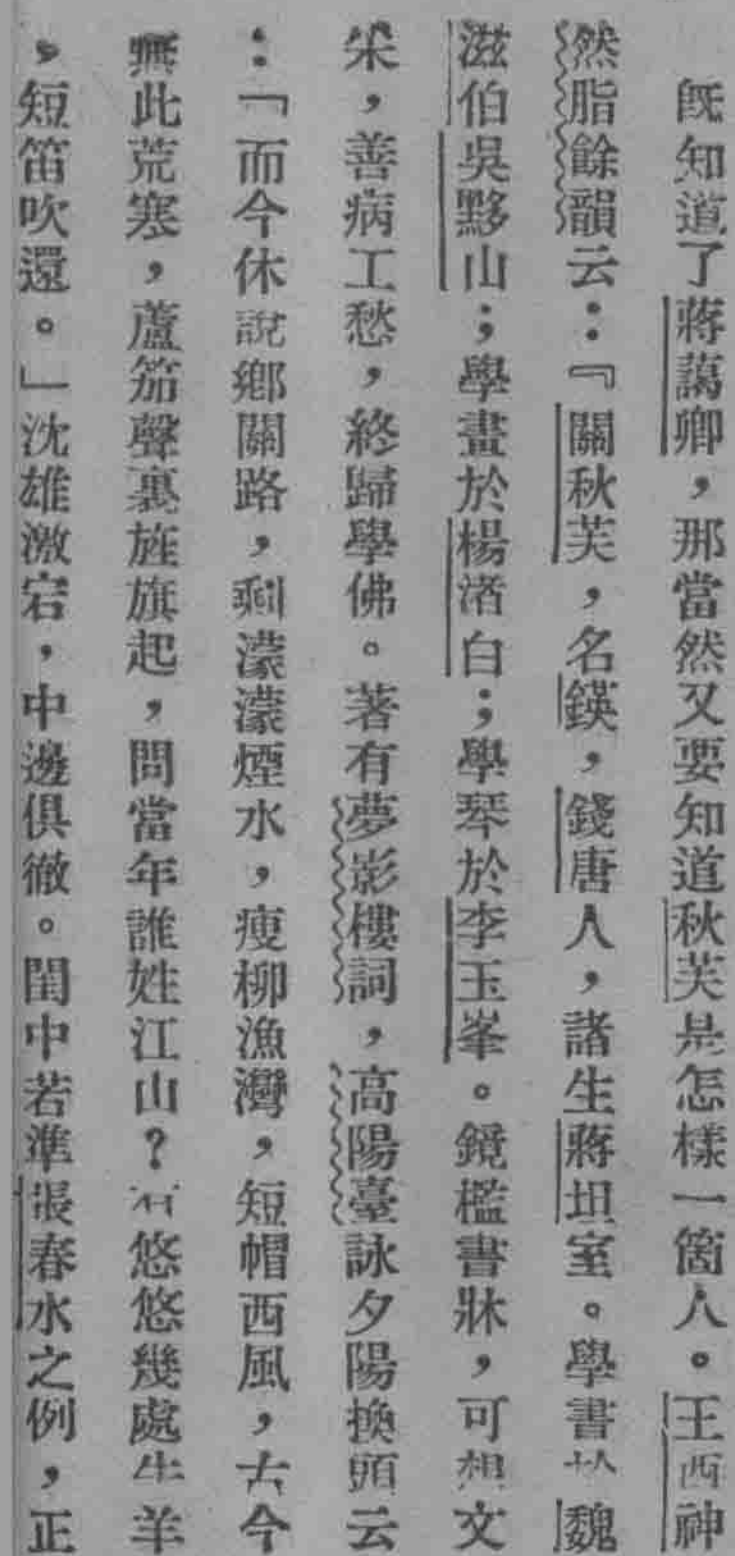 既知道了蔣藹卿，那當然又要知道秋芙是怎樣一箇人。王西神
然脂餘韻云：『關秋芙，名鍈，錢唐人，諸生蔣坦室。學書於魏
滋伯吳黟山；學畫於楊渚白；學琴於李玉峯。鏡檻書牀，可想文
采，善病工愁，終歸學佛。著有夢影樓詞，高陽臺詠夕陽換頭云
：「而今休說鄉關路，剩濛濛煙水，瘦柳漁灣，短帽西風，古今
無此荒寒，蘆笳聲裏旌旗起，問當年誰姓江山？悠悠幾處牛羊
，短笛吹還。」沈雄激宕，中邊俱徹。閨中若準張春水之例，正